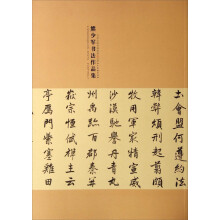 少军书法作品集
土會盟何遵約法
韓弊煩刑起翦頗
牧用軍㝡精宣威
沙漠馳譽丹青九
州禹跡百郡秦并
嶽宗恒岱禪主云
亭鴈門紫塞雞田